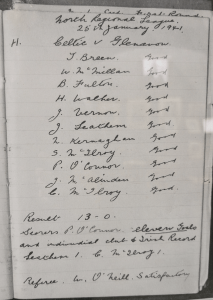 Cup First Round
North Regional League.
25th January 1941
H. Celtic v Glenavon
T Breen. Good
W. McMillan Good
B. Fulton. Good
H. Walker. Good
J. Vernon. Good
J. Leathem Good
N. Kernaghan Good
S. McIlroy. Good
P. O'Connor. Good
J. McAlinden Good
C. McIlroy. Good.
Result 13-0.
Scorers P. O'Connor. eleven Goals
and individual club & Irish Record
Leathem 1. C. McIlroy 1.
Referee. W. O'Neill. Satisfactory